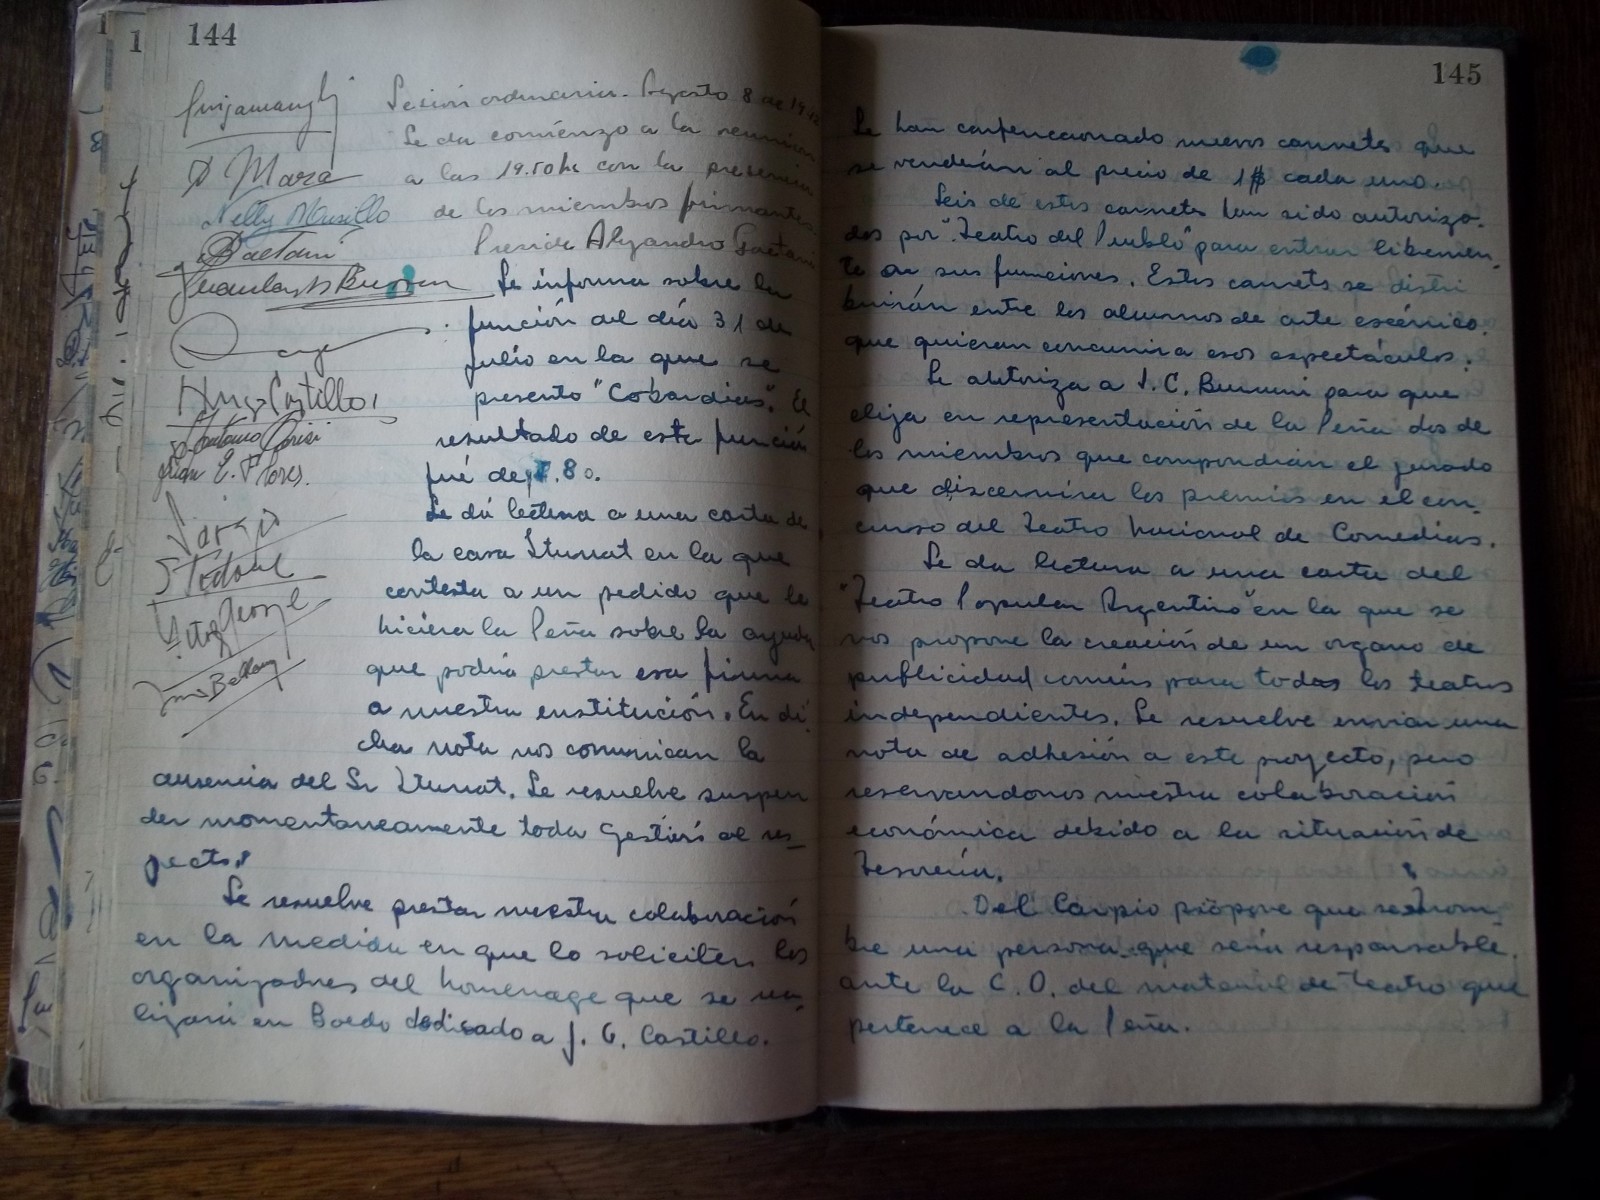 144
Sesión ordinaria. Agosto 8 de 19
Se da comienzo a la reunión
a las 19.50 hs con la presencia
de los miembros firmantes.
Preside Alejandro Gaetani
D Mara
Nelly Musillo
Gaetani
Hugo Castillo
Antonio Parisi
Juan E. Flores.
Sergio
Stodart
Bellany
Se informa sobre la
función del día 31 de
julio en la que se
presentó "Cobardias". El
resultado de esta función
fué de 80.
Se dá lectura a una carta de
la casa Iturrat en la que
contesta a un pedido que le
hiciera la Peña sobre la ayuda
que podría prestar esa firma
a nuestra enstitución. En di
cha nota nos comunican la
ausencia del Sr Iturrat. Se resuelve suspen
der momentaneamente toda gestión al res_
pecto.
Se resuelve prestar nuestra colaboración
en la medida en que lo soliciten los
organizadores del homenage que se rea_
lizará en Boedo dedicado a J. G. Castillo.
145
Se han confeccionado nuevos carnets que
se venderán al precio de 1$ cada uno.
Seis de estos carnets han sido autoriza_
dos por "Teatro del Pueblo" para entrar libremen_
te a sus funciones. Estos carnets se distri
buirán entre los alumnos de arte escénico
que quieran concurrir a esos espectáculos.
Se autoriza a J. C. para que
elija en representación de la Peña dos de
los miembros que compondrán el jurado
que discernirá los premios en el con_
curso del Teatro Nacional de Comedias.
Se da lectura a una carta del
"Teatro Popular Argentino" en la que se
nos propone la creación de un organo de
publicidad común para todos los teatros
independientes. Se resuelve enviar una
nota de adhesión a este proyecto, pero
reservandonos nuestra colaboración
económica debido a la situación de
Tesorería.
Del Carpio propone que se nom_
bre una persona que sería responsable
ante la C. D. del material de teatro que
pertenece a la Peña.